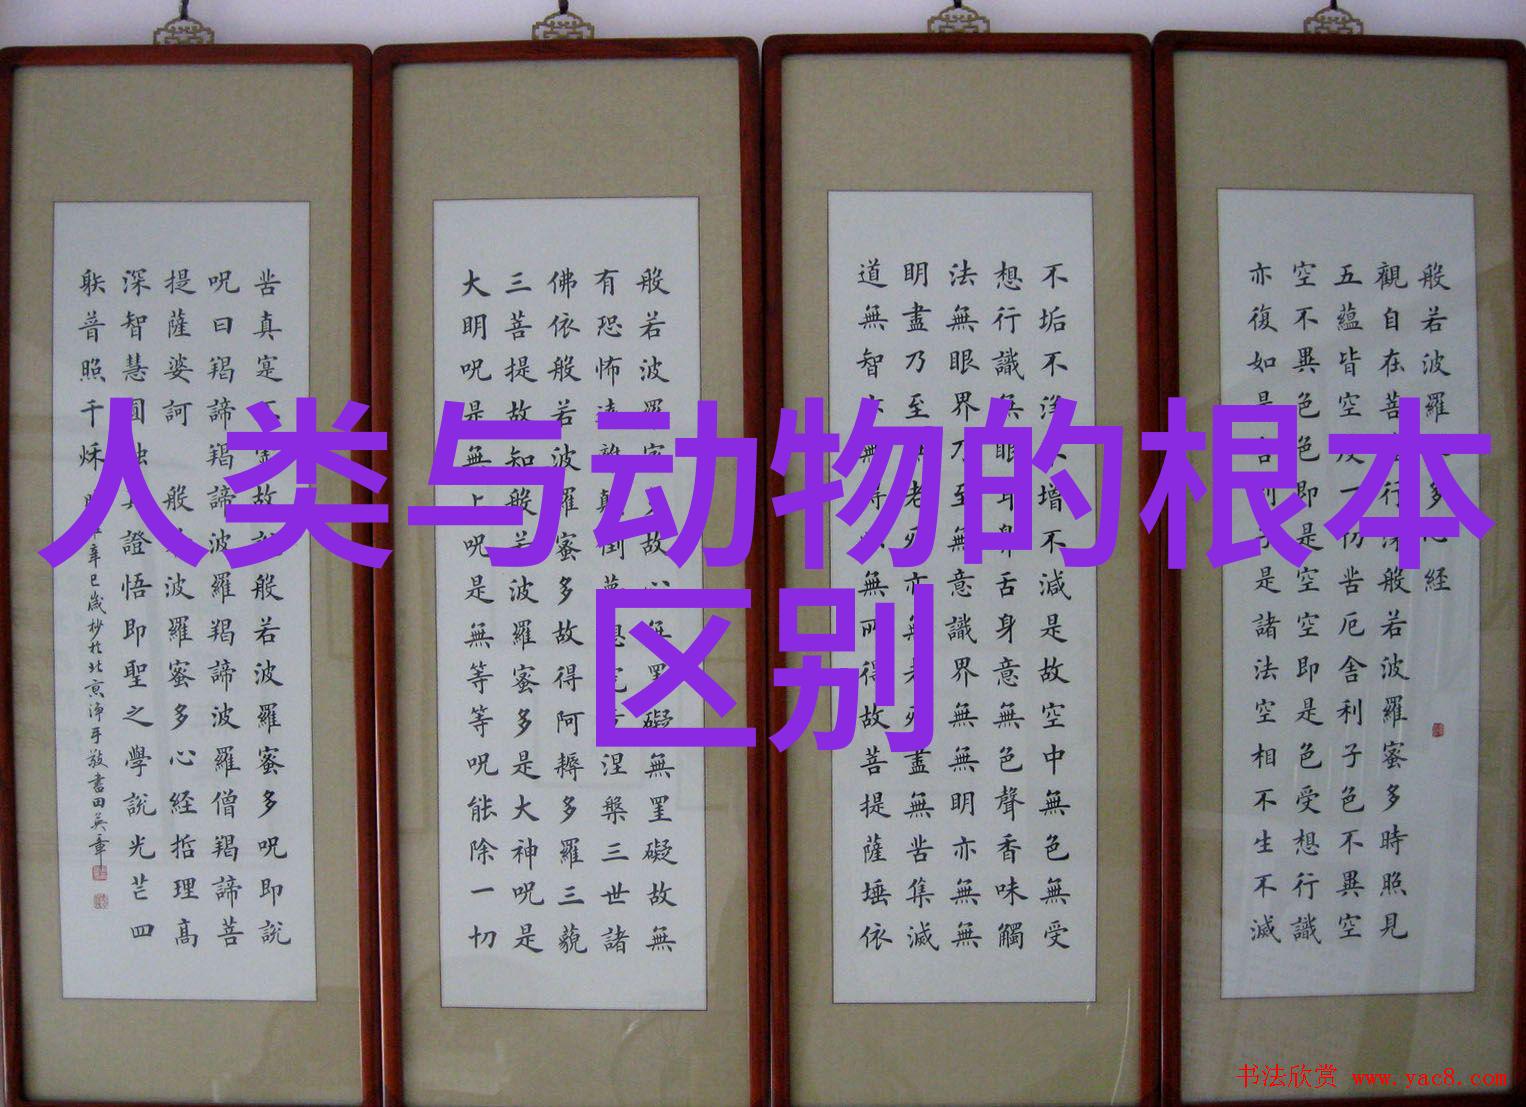 人类与动物的根本
区别
般若波羅多経
觀自在菩行深般若波羅蜜多時照見
五蘊皆空度一切苦厄舍利子色不異空
空不異色色即是空空即是色受想行識
亦復如是舍利子是諸法空相不生不滅
不垢不淨不增不減是故空中無色無受
想行識無眼耳鼻舌身意無色聲香味觸
法無眼界乃至無意識界無無明亦無無
明盡乃至老死亦無老死盡無苦集滅
道無智亦無得無所得故菩提薩埵依
般若波羅蜜故心無罣礙無罣礙故無
有恐怖遠離顛倒夢想究竟涅槃三世諸
佛依般若波羅蜜多故得阿耨多羅三藐
三菩提故知般若波羅蜜多是大神呪是
大明呪是無上呪是無等等呪能除一切
苦真寔不故說般若波羅蜜多呪即説
呪曰羯諦羯諦波羅羯諦波羅僧羯諦菩
提薩婆訶 般波羅蜜多心経哲理高
深智慧圓融證悟即聖之學說光芒四
躲普照千秌 辛巳歲杪於北京淨手敬書田英章
书法欣赏 www.yac8.com